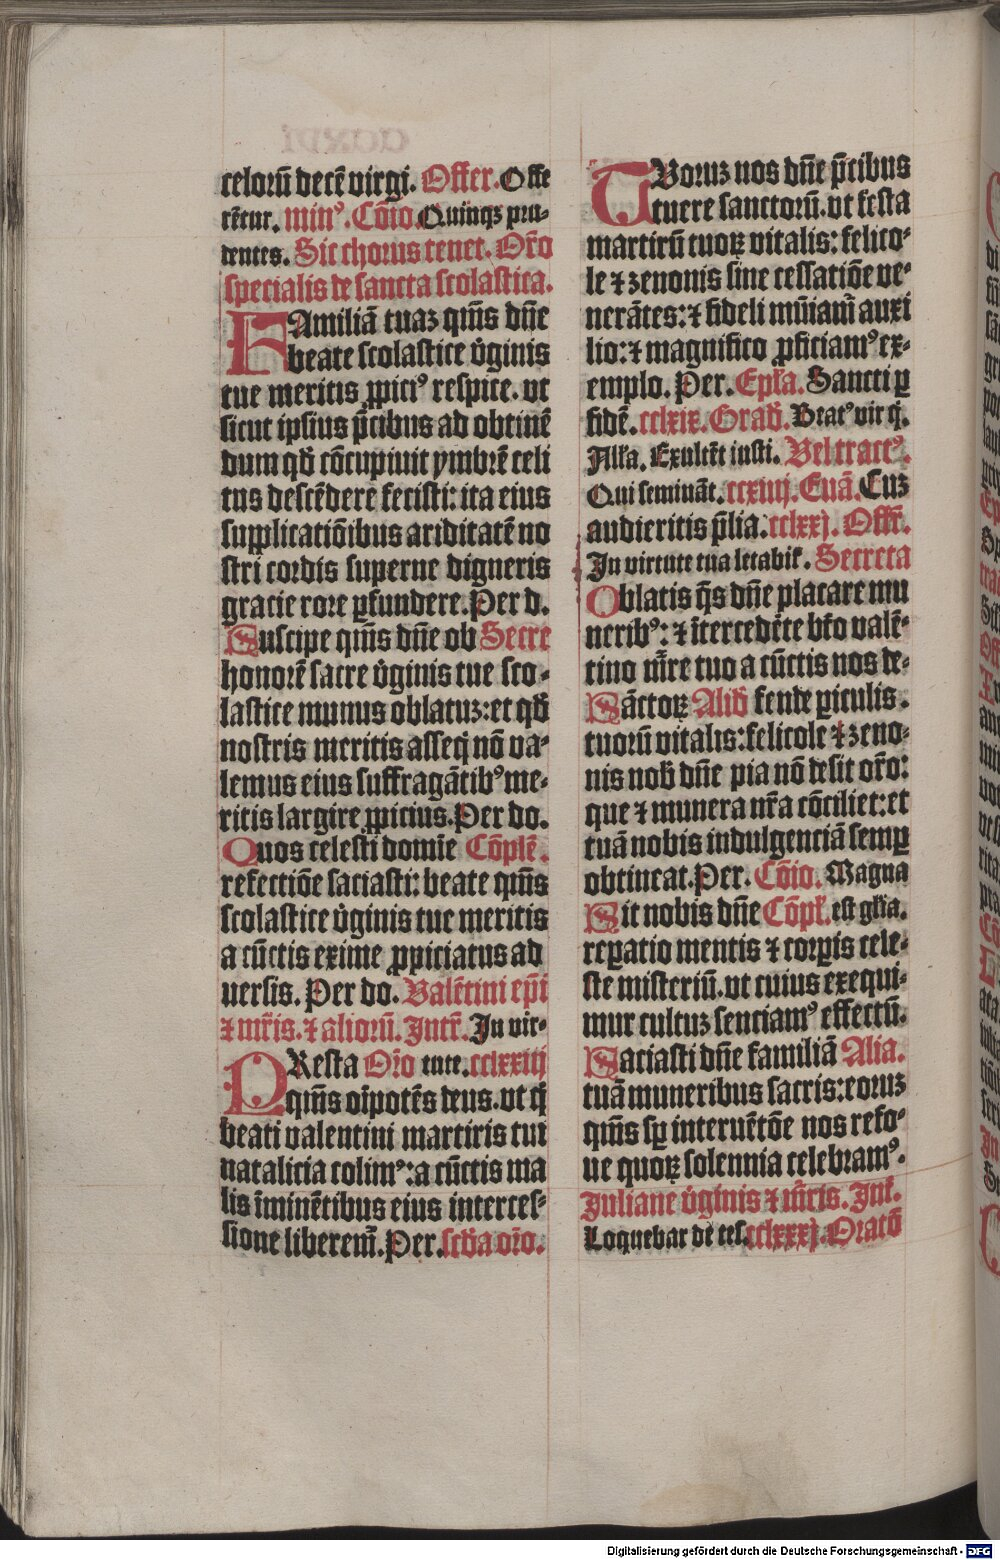 celorū decē virgi. Offer. Offe
rētur. min⁹. Cōio. Quinqꝫ pru-
dentes. Sic chorus tenet. Or̄o
specialis de sancta scolastica.
FAmiliā tuaꝫ qm̄s dn̄e
beate scolastice v̇ginis
tue meritis ꝓpici⁹ respice. vt
sicut ipsius p̄cibus ad obtinē
dum qd̄ cōcupiuit ymbrē celi
tus descēdere fecisti: ita eius
supplicatiōibus ariditatē no
stri cordis superne digneris
gracie rore ꝑfundere. Per d.
Suscipe qm̄s dn̄e ob Secre
honorē sacre v̇ginis tue sco-
lastice munus oblatuꝫ: et qd̄
nostris meritis asseq̄ nō va-
lemus eius suffragātib⁹ me-
ritis largire ꝓpicius. Per do.
Quos celesti domīe Cōplē.
refectiōe saciasti: beate qm̄s
scolastice v̇ginis tue meritis
a cūctis exime ꝓpiciatus ad
uersis. Per do. Valētini ep̄i
⁊ mr̄is. ⁊ aliorū. Intr̄. In vir-
PResta Or̄o tute. cclxxiij
qm̄s oīpotēs deus. vt q̄
beati valentini martiris tui
natalicia colim⁹: a cūctis ma
lis īminētibus eius interces-
sione liberem̄. Per. scd̄a or̄o.
TVoruꝫ nos dn̄e p̄cibus
tuere sanctorū. vt festa
martirū tuoꝝ vitalis: felico-
le ⁊ zenonis sine cessatiōe ve-
nerātes: ⁊ fideli mūiam̄ auxi
lio: ⁊ magnifico ꝓficiam⁹ ex-
emplo. Per. Ep̄la. Sancti ꝑ
fidē. cclxix. Grad̄. Beat⁹ vir q̄.
All̄a. Exultēt iusti. Vel tract⁹.
Qui semināt. ccxiiij. Euā. Cuꝫ
audieritis p̄lia. cclxxj. Offr̄.
In virtute tua letabit̄. Secreta
Oblatis q̄s dn̄e placare mu
nerib⁹: ⁊ ītercedēte bt̄o valē-
tino mr̄e tuo a cūctis nos de-
Sāctoꝝ Alid̄ fende ꝑiculis.
tuorū vitalis: felicole ⁊ zeno-
nis nob̄ dn̄e pia nō desit or̄o:
que ⁊ munera nr̄a cōciliet: et
tuā nobis indulgenciā semꝑ
obtineat. Per. Cōio. Magna
Sit nobis dn̄e Cōpl̄. est gl̄ia.
reꝑatio mentis ⁊ corꝑis cele-
ste misteriū. vt cuius exequi-
mur cultuꝫ senciam⁹ effectū.
Saciasti dn̄e familiā Alia.
tuā muneribus sacris: eoruꝫ
qm̄s sꝑ interuētōe nos refo-
ue quoꝝ solennia celebram⁹.
Juliane v̇ginis ⁊ mr̄is. Int̄.
Loquebar de tes. cclxxxj. Oratō